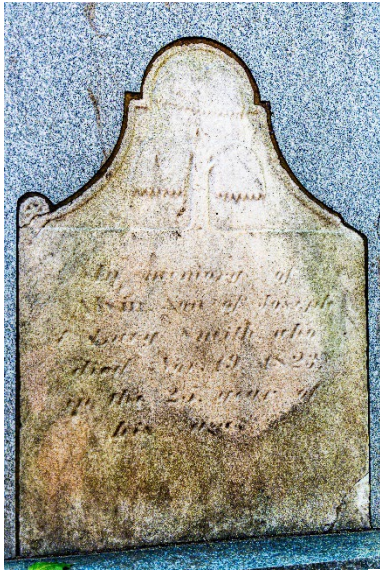 In memory of
Alvin, Son of Joseph
& Lucy Smith who
died Nov. 19. 1823,
in the 25. year of
his age.